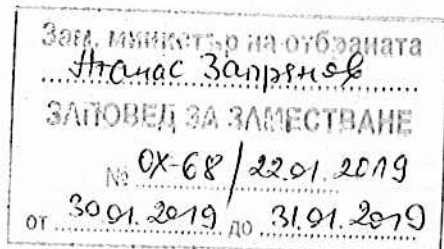 Зам. министър на отбраната
Атанас Запрянов
ЗАПОВЕД ЗА ЗАМЕСТВАНЕ
№ ОХ-68/22.01.2019
от 30.01.2019 до 31.01.2019